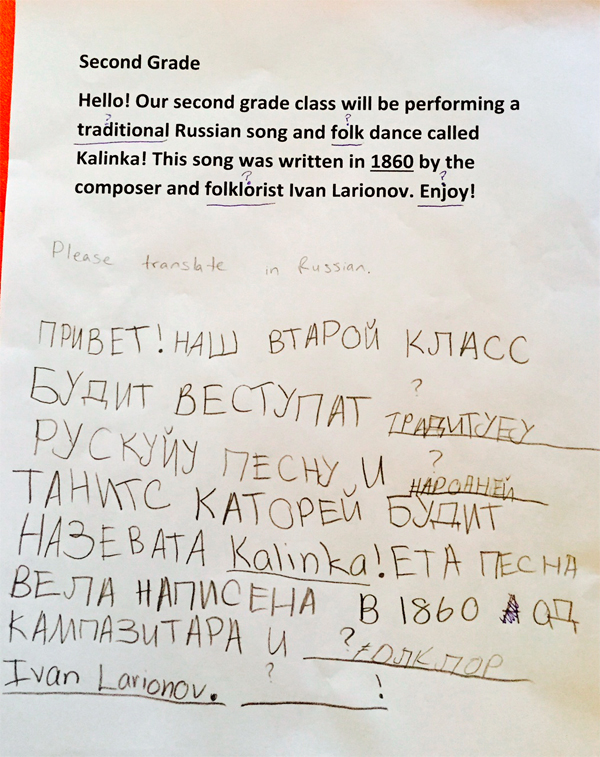 Second Grade
Hello! Our second grade class will be performing a
traditional Russian song and folk dance called
Kalinka! This song was written in 1860 by the
composer and folklorist Ivan Larionov. Enjoy!
? ? ? ?
Please translate in Russian.
ПРИВЕТ! НАШ ВТАРОЙ КЛАСС
БУДИТ ВЕСТУПАТ ?
РУСКУЙУ ПЕСНУ И ? НАРОДНЕЙ
ТАНИТС КАТОРЕЙ БУДИТ
НАЗЕВАТА Kalinka! ЕТА ПЕСНА
ВЕЛА НАПИСЕНА В 1860 ОД
КАМПАЗИТАРА И ? ФОЛКЛОР
Ivan Larionov. ? !